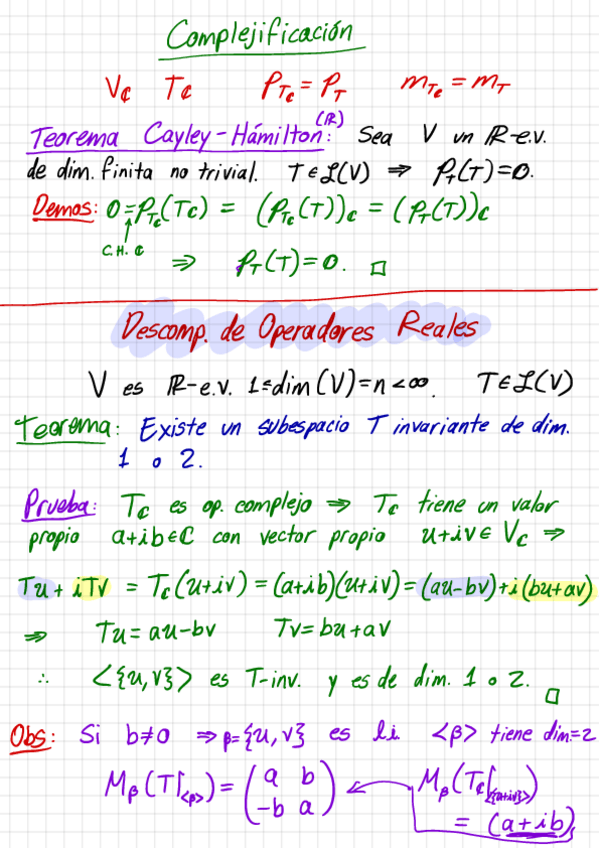 Complejificación
V_ℂ T_ℂ P_{T_ℂ} = P_T m_{T_ℂ} = m_T
Teorema Cayley-Hámilton (ℝ): Sea V un ℝ-e.v.
de dim. finita no trivial. T∈ℒ(V) ⇒ P_T(T)=0.
Demos: 0=P_{T_ℂ}(T_ℂ) = (P_{T_ℂ}(T))_ℂ = (P_T(T))_ℂ
↑
C.H. ℂ
⇒ P_T(T)=0. □
Descomp. de Operadores Reales
V es ℝ-e.v. 1≤dim(V)=n<∞. T∈ℒ(V)
Teorema: Existe un subespacio T invariante de dim.
1 o 2.
Prueba: T_ℂ es op. complejo ⇒ T_ℂ tiene un valor
propio a+ib∈ℂ con vector propio u+iv∈V_ℂ ⇒
Tu+iTv = T_ℂ(u+iv) = (a+ib)(u+iv) = (au-bv)+i(bu+av)
⇒ Tu=au-bv Tv=bu+av
∴ <{u,v}> es T-inv. y es de dim. 1 o 2. □
Obs: Si b≠0 ⇒ β={u,v} es li <β> tiene dim=2
M_β(T|_{<β>}) = (a b; -b a) ← M_β(T_ℂ|_{<{u+iv}>})
= (a+ib)